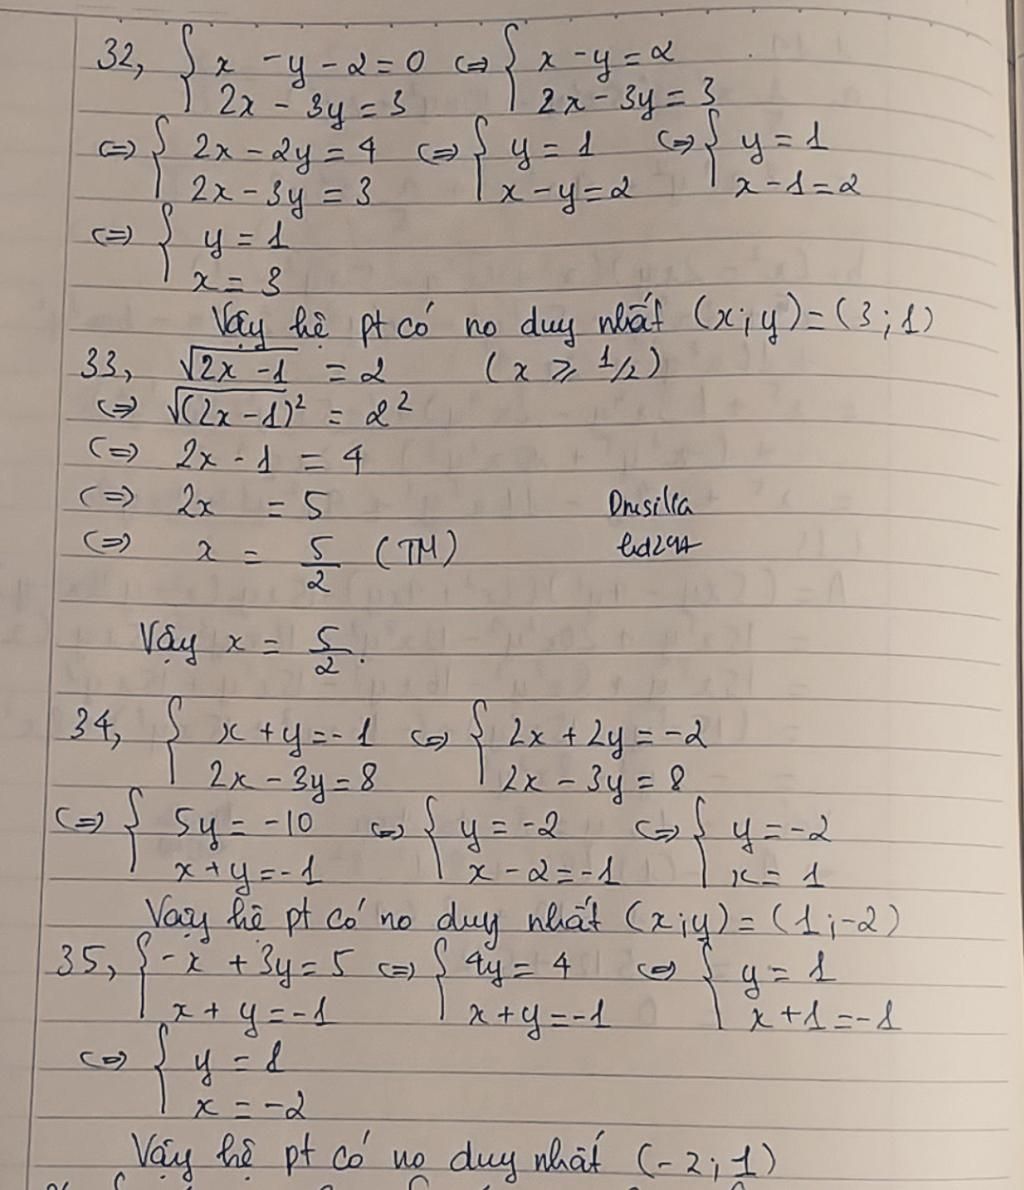 32, { x - y - 2 = 0 <=> { x - y = 2
2x - 3y = 3 2x - 3y = 3
<=> { 2x - 2y = 4 <=> { y = 1 <=> { y = 1
2x - 3y = 3 x - y = 2 x - 1 = 2
<=> { y = 1
x = 3
Vậy hệ pt có no duy nhất (x;y) = (3;1)
33, √(2x - 1) = 2 (x ⩾ 1/2)
<=> √(2x - 1)² = 2²
<=> 2x - 1 = 4
<=> 2x = 5 Drusilla
<=> x = 5/2 (TM)
Vậy x = 5/2.
34, { x + y = -1 <=> { 2x + 2y = -2
2x - 3y = 8 2x - 3y = 8
<=> { 5y = -10 <=> { y = -2 <=> { y = -2
x + y = -1 x - 2 = -1 x = 1
Vậy hê pt có no duy nhất (x;y) = (1;-2)
35, { -x + 3y = 5 <=> { 4y = 4 <=> { y = 1
x + y = -1 x + y = -1 x + 1 = -1
<=> { y = 1
x = -2
Vậy hệ pt có no duy nhất (-2;1)